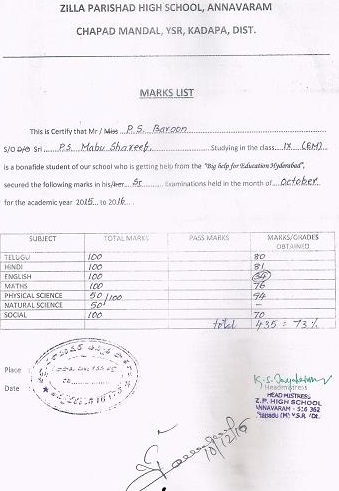 ZILLA PARISHAD HIGH SCHOOL, ANNAVARAM
CHAPAD MANDAL, YSR, KADAPA, DIST.
MARKS LIST
This is Certify that Mr / Miss P.S. Baroon
S/O D/o Sri P.S. Mabu Shareef. Studying in the class IX (EM)
is a bonafide student of our school who is getting help from the "Big help for Education Hyderabad",
secured the following marks in his/her Examinations held in the month of October
for the academic year 2015 to 2016.
SUBJECT TOTAL MARKS PASS MARKS MARKS/GRADES OBTAINED
TELUGU 100 80
HINDI 100 81
ENGLISH 100 34
MATHS 100 76
PHYSICAL SCIENCE 50/100 94
NATURAL SCIENCE 50 —
SOCIAL 100 70
total 435 = 73%
Place
Date
Headmistress
HEAD MISTRESS
Z.P. HIGH SCHOOL
ANNAVARAM - 516 362